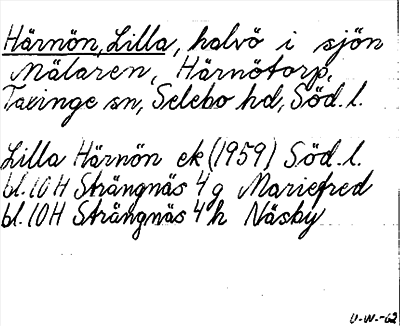 Härnön, Lilla, halvö i sjön
Mälaren, Härnötorp,
Taxinge sn, Selebo hd, Söd. l.
Lilla Härnön ek (1959) Söd. l.
bl. 10H Strängnäs 4g Mariefred
bl. 10H Strängnäs 4h Näsby
U.W.-62